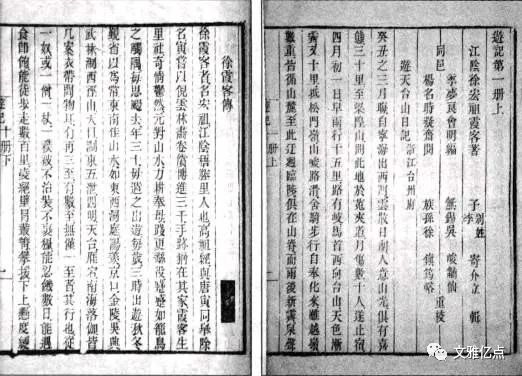 遊記第一冊上
江陰徐宏祖霞客著 子李寄介立 輯
同邑 李夢良會明編 無錫吳 峻
楊名時凝齋閱 族孫徐 鎮筠峪 重校
遊天台山日記浙江台州府
癸丑之三月晦自寧海出西門雲散日朗人意山光俱有喜
態三十里至梁隍山聞此地於菟夾道月傷數十人遂止宿
四月初一日早雨行十五里路有岐馬首西向台山天色漸
霽又十里抵松門嶺山峻路滑舍騎步行自奉化來雖越嶺
數重皆循山麓至此迂迴臨陟俱在山脊而雨後新霽泉聲
遊記一冊上
徐霞客傳
徐霞客者名宏祖江陰梧塍里人也高祖經與唐寅同舉除
名寅嘗以倪雲林畫卷償博進三千手跡猶在其家霞客生
里社奇情鬱然元對山水力耕奉母踐更繇役蹙蹙如籠鳥
之觸隅每思颺去年三十母遣之出遊每歲三時出遊秋冬
覲省以為常東南佳山水如東西洞庭陽羨京口金陵吳興
武林浙西徑山天目浙東五泄四明天台雁宕南海落伽皆
几案衣帶間物耳有再三至有數至無僅一至者其行也從
一奴或一僧一杖一襆被不治裝不裹糧能忍饑數日能遇
食即飽能徒步走數百里凌絕壁冒叢箐攀援下上懸度綆
遊記十冊下
文雅亿点